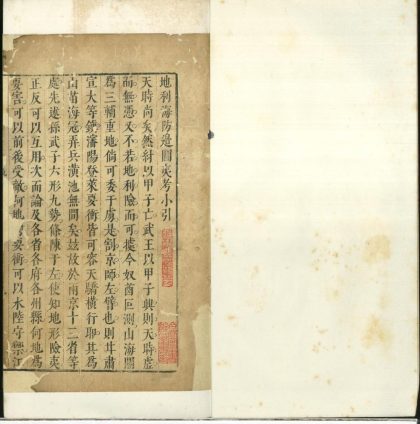 地利海防邊圖夷考小引
天時尚矣然紂以甲子亡武王以甲子興則天時虛
而無憑又不若地利險而可據今奴酋叵測山海關
爲三輔重地倘可委于虜是割京師左臂也則幷肅
宣大等鎮瀋陽登萊要衝皆可容天驕橫行耶其爲
海冦弄兵潢池無間矣兹故於南京十三省等
處先述孫武子六形九勢條陳于左使知地形險夷
正反可以互用次而論及各省各府各州縣何地爲
要害可以前後受敵何地要衝可以水陸守禦江